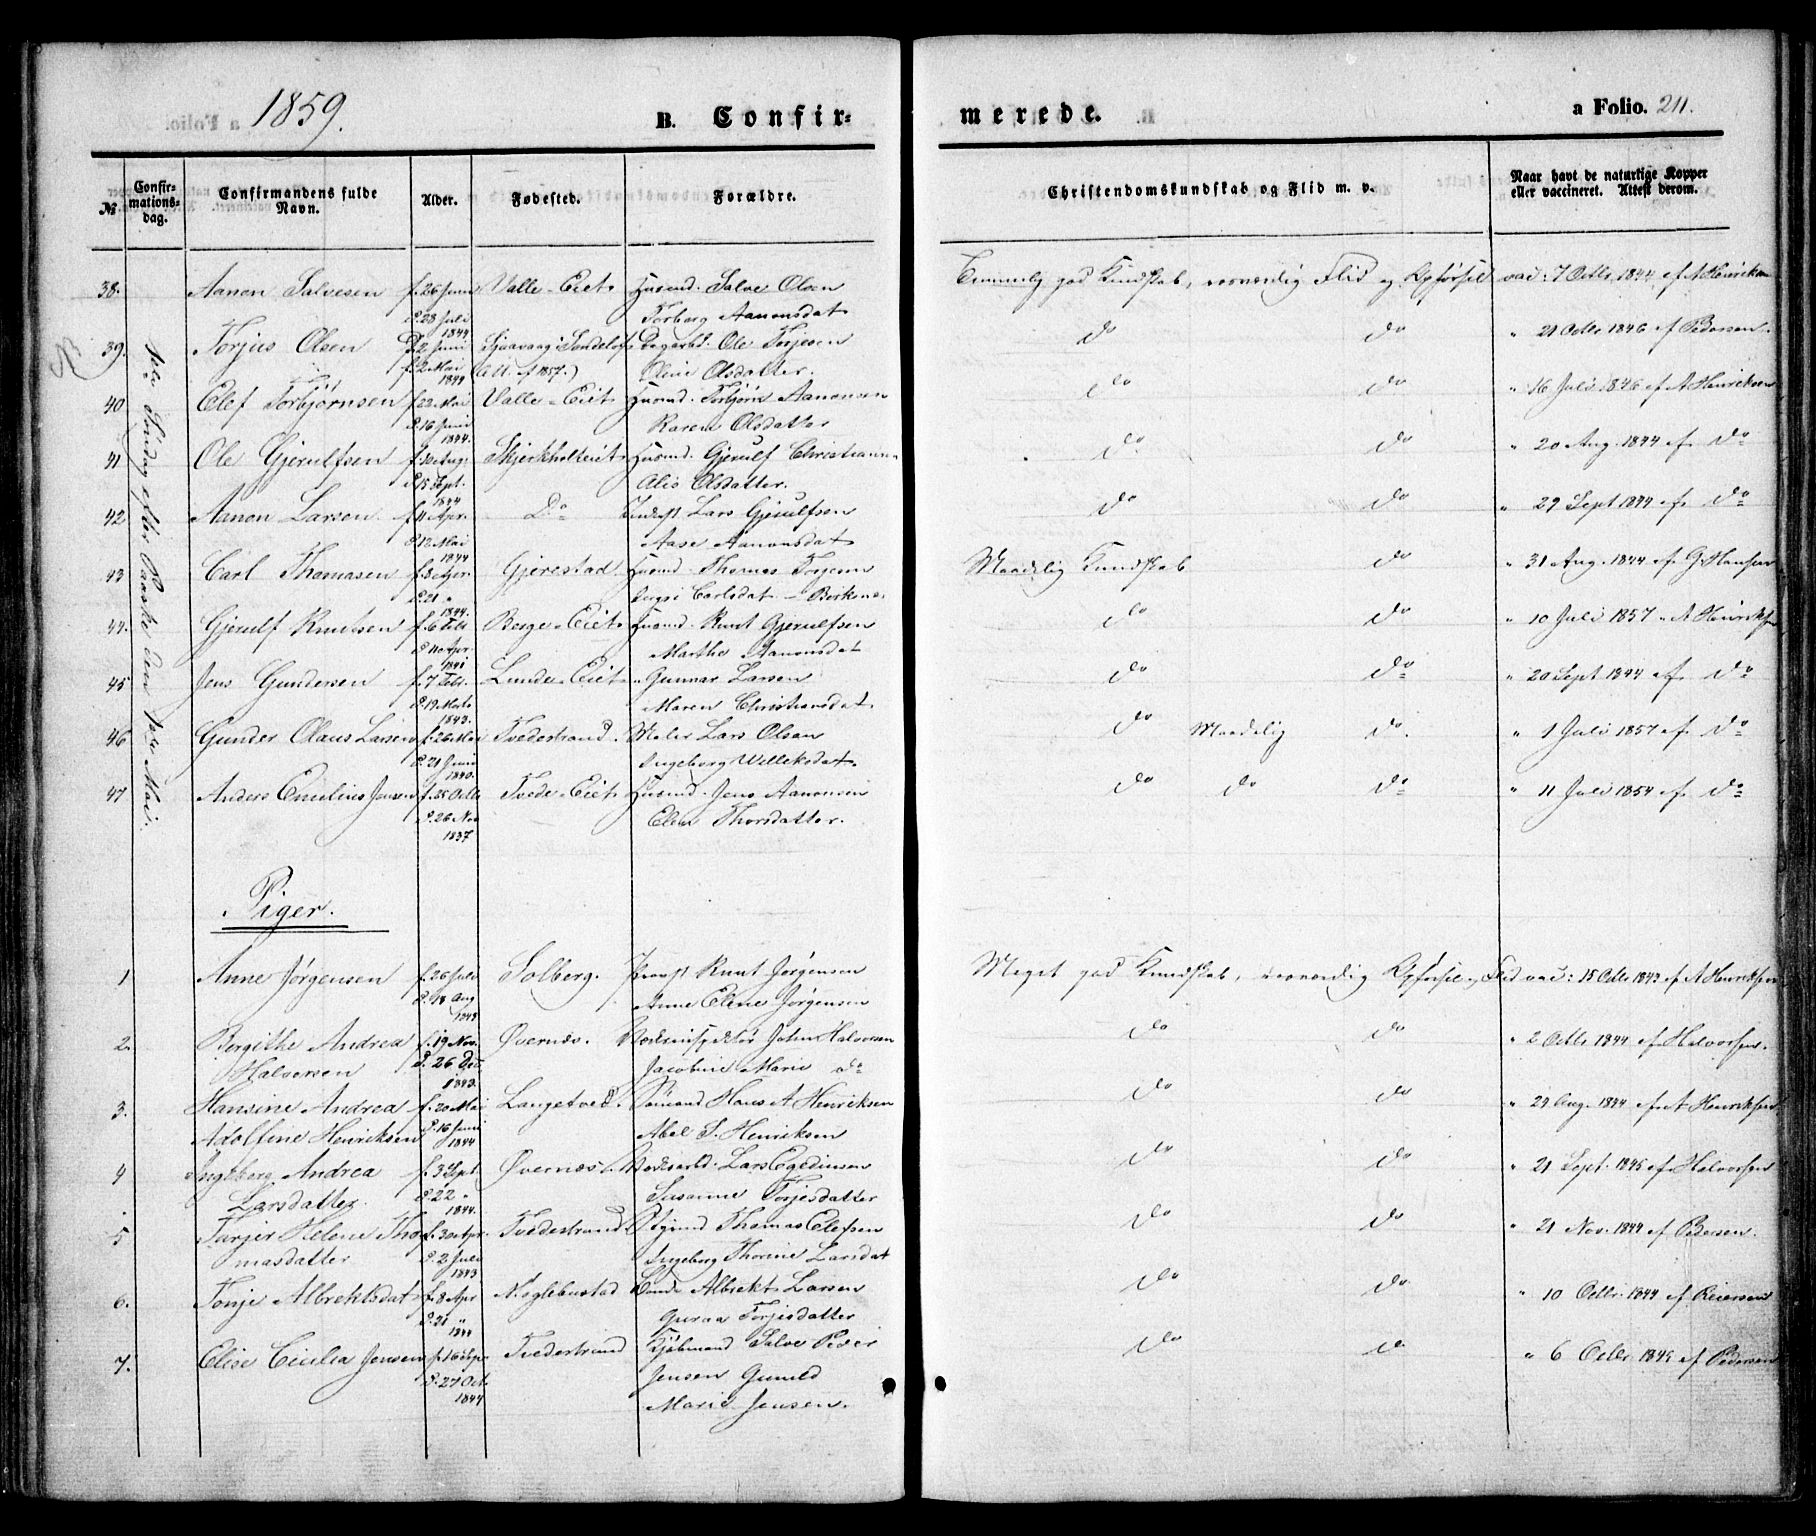 1859.
B. Confirmerede.
a Folio. 211.
№
Confirmationsdag.
Confirmandens fulde Navn.
Alder.
Fødested.
Forældre.
Christendomskundskab og Flid m. v.
Naar havt de naturlige Kopper eller vaccineret. Attest derom.
1ste Søndag efter Paaske den 1ste Mai.
38. Aanon Salvesen f. 26 Juni Valle-Eiet Husmd. Salve Olsen Temmelig god Kundskab, Flid og Opførsel vac: 7 Octb 1844 af A Henriksen
d. 28 Juli 1844 Torborg Aanonsdat
39. Torjus Olsen 2 Juni Ole Torjesen do do " 21 Octb 1846 af Pedersen.
f. 2 Mai 1844 (Att. af 1857.) Oline Olsdatter.
40 Elef Torbjørnsen f. 22 Mai Valle-Eiet Husmd. Torbjørn Aanonsen do do " 16 Juli 1846 af A Henriksen
d. 16 Juni 1844. Karen Olsdatter
41 Ole Gjerulfsen f. 30 Aug. Skjerkholteiet Husmd. Gjerulf Christians do do " 20 Aug. 1844 af do
d. 15 Sept. 1844 Alis Olsdatter.
42 Aanon Larsen f. 11 Apr. Do Lars Gjerulfsen do do " 29 Sept 1844 af do
d. 12 Mai 1844 Aase Aanonsdat
43 Carl Thomasen f. 3 Apr. Gjerestad Husmd. Thomas Torjesen Maadelig Kundskab do " 31 Aug. 1844 af G. Hansen
d. 21 " 1844. Carlsdat
44. Gjerulf Knudsen f. 6 Feb Berge-Eiet Husmd. Knut Gjerulfsen do do " 10 Juli 1857 " A Henriksen
d. 11 Apr. 1841 Marthe Aanonsdat
45 Jens Gundersen f. 7 Febr. Lunde-Eiet " Gunnar Larsen do do " 20 Sept 1844 af do
d. 19 Marts 1843. Maren Christiansdat
46 Gunder Olaus Larsen f. 26 Mai Tvedestrand. Maler Lars Olsen do Maadelig do. " 1 Juli 1857 af do
d. 21 Juni 1840. Ingeborg Willeksdat
47 Anders Emilius Jensen f. 25 Octb Tvede-Eiet Husmd. Jens Aanonsen do do do " 11 Juli 1854 af do
d. 26 Nov 1837 Elen Thorsdatter.
Piger.
1 Anne Jørgensen f. 26 Juli Solberg. Knut Jørgensen Meget god Kundskab, Opførsel og Flid vac: 15 Octb 1843 af A Henriksen
d. 18 Aug 1843 Anne Elene Jørgensen
2. Bergithe Andrea f. 19 Nov. Øvernæs. John Halvorsen do do " 2 Octb 1844 af Halvorsen.
Halversen d. 26 Dec 1843. Jacobine Marie do
3. Hansine Andrea f. 20 Mai Langetved. Sømand Hans A Henriksen do do " 29 Aug. 1844 af A Henriksen
Adolfine Henriksen d. 16 Juni 1844 Abel S. Henriksen
4 Ingeborg Andrea f. 3 Sept. Øvernæs. Lars Egedinsen do do " 21 Sept. 1845 af Halvorsen
Larsdatter. d. 22 " 1844. Susanne Torjesdatter
5 Tarjer Helene Tho f. 30 Apr. Tvedestrand Thomas Elefsen do do " 21 Nov. 1844 af Pedersen.
masdatter d. 2 Juli 1843 Ingeborg Thorine Larsdat
6. Tonje Albrektsdat f. 8 Apr N. Eglebustad Albrekt Larsen do do " 10 Octbr. 1844 af Reiersen
d. 21 " 1844 Guraa Torjesdatter
7. Elise Cicilia Jensen f. 16 Sept Tvedestrand Kjøbmand Salve Peder do do " 6 Octbr 1845 af Pedersen
d. 27 Oct. 1844 Jensen Gunild
Marie Jensen.